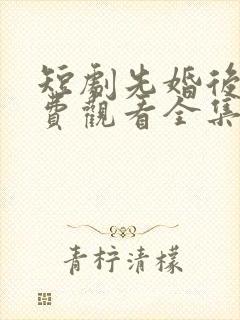 短劇先婚後
費觀看全集
青柠清檬